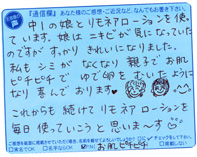 『通信欄』あなた様のご感想・ご近況など、なんでもお書き下さい。
中1の娘とリモネアローションを使っ
ています。娘はニキビが気になっていた
のですが すっかり きれいになりました。
私も シミが なくなり 親子でお肌
ピチピチで ゆで卵を むいたように
なり 喜んでおります。
これからも 続けて リモネアローションを
毎日使っていこうと思います
お肌ピチピチ